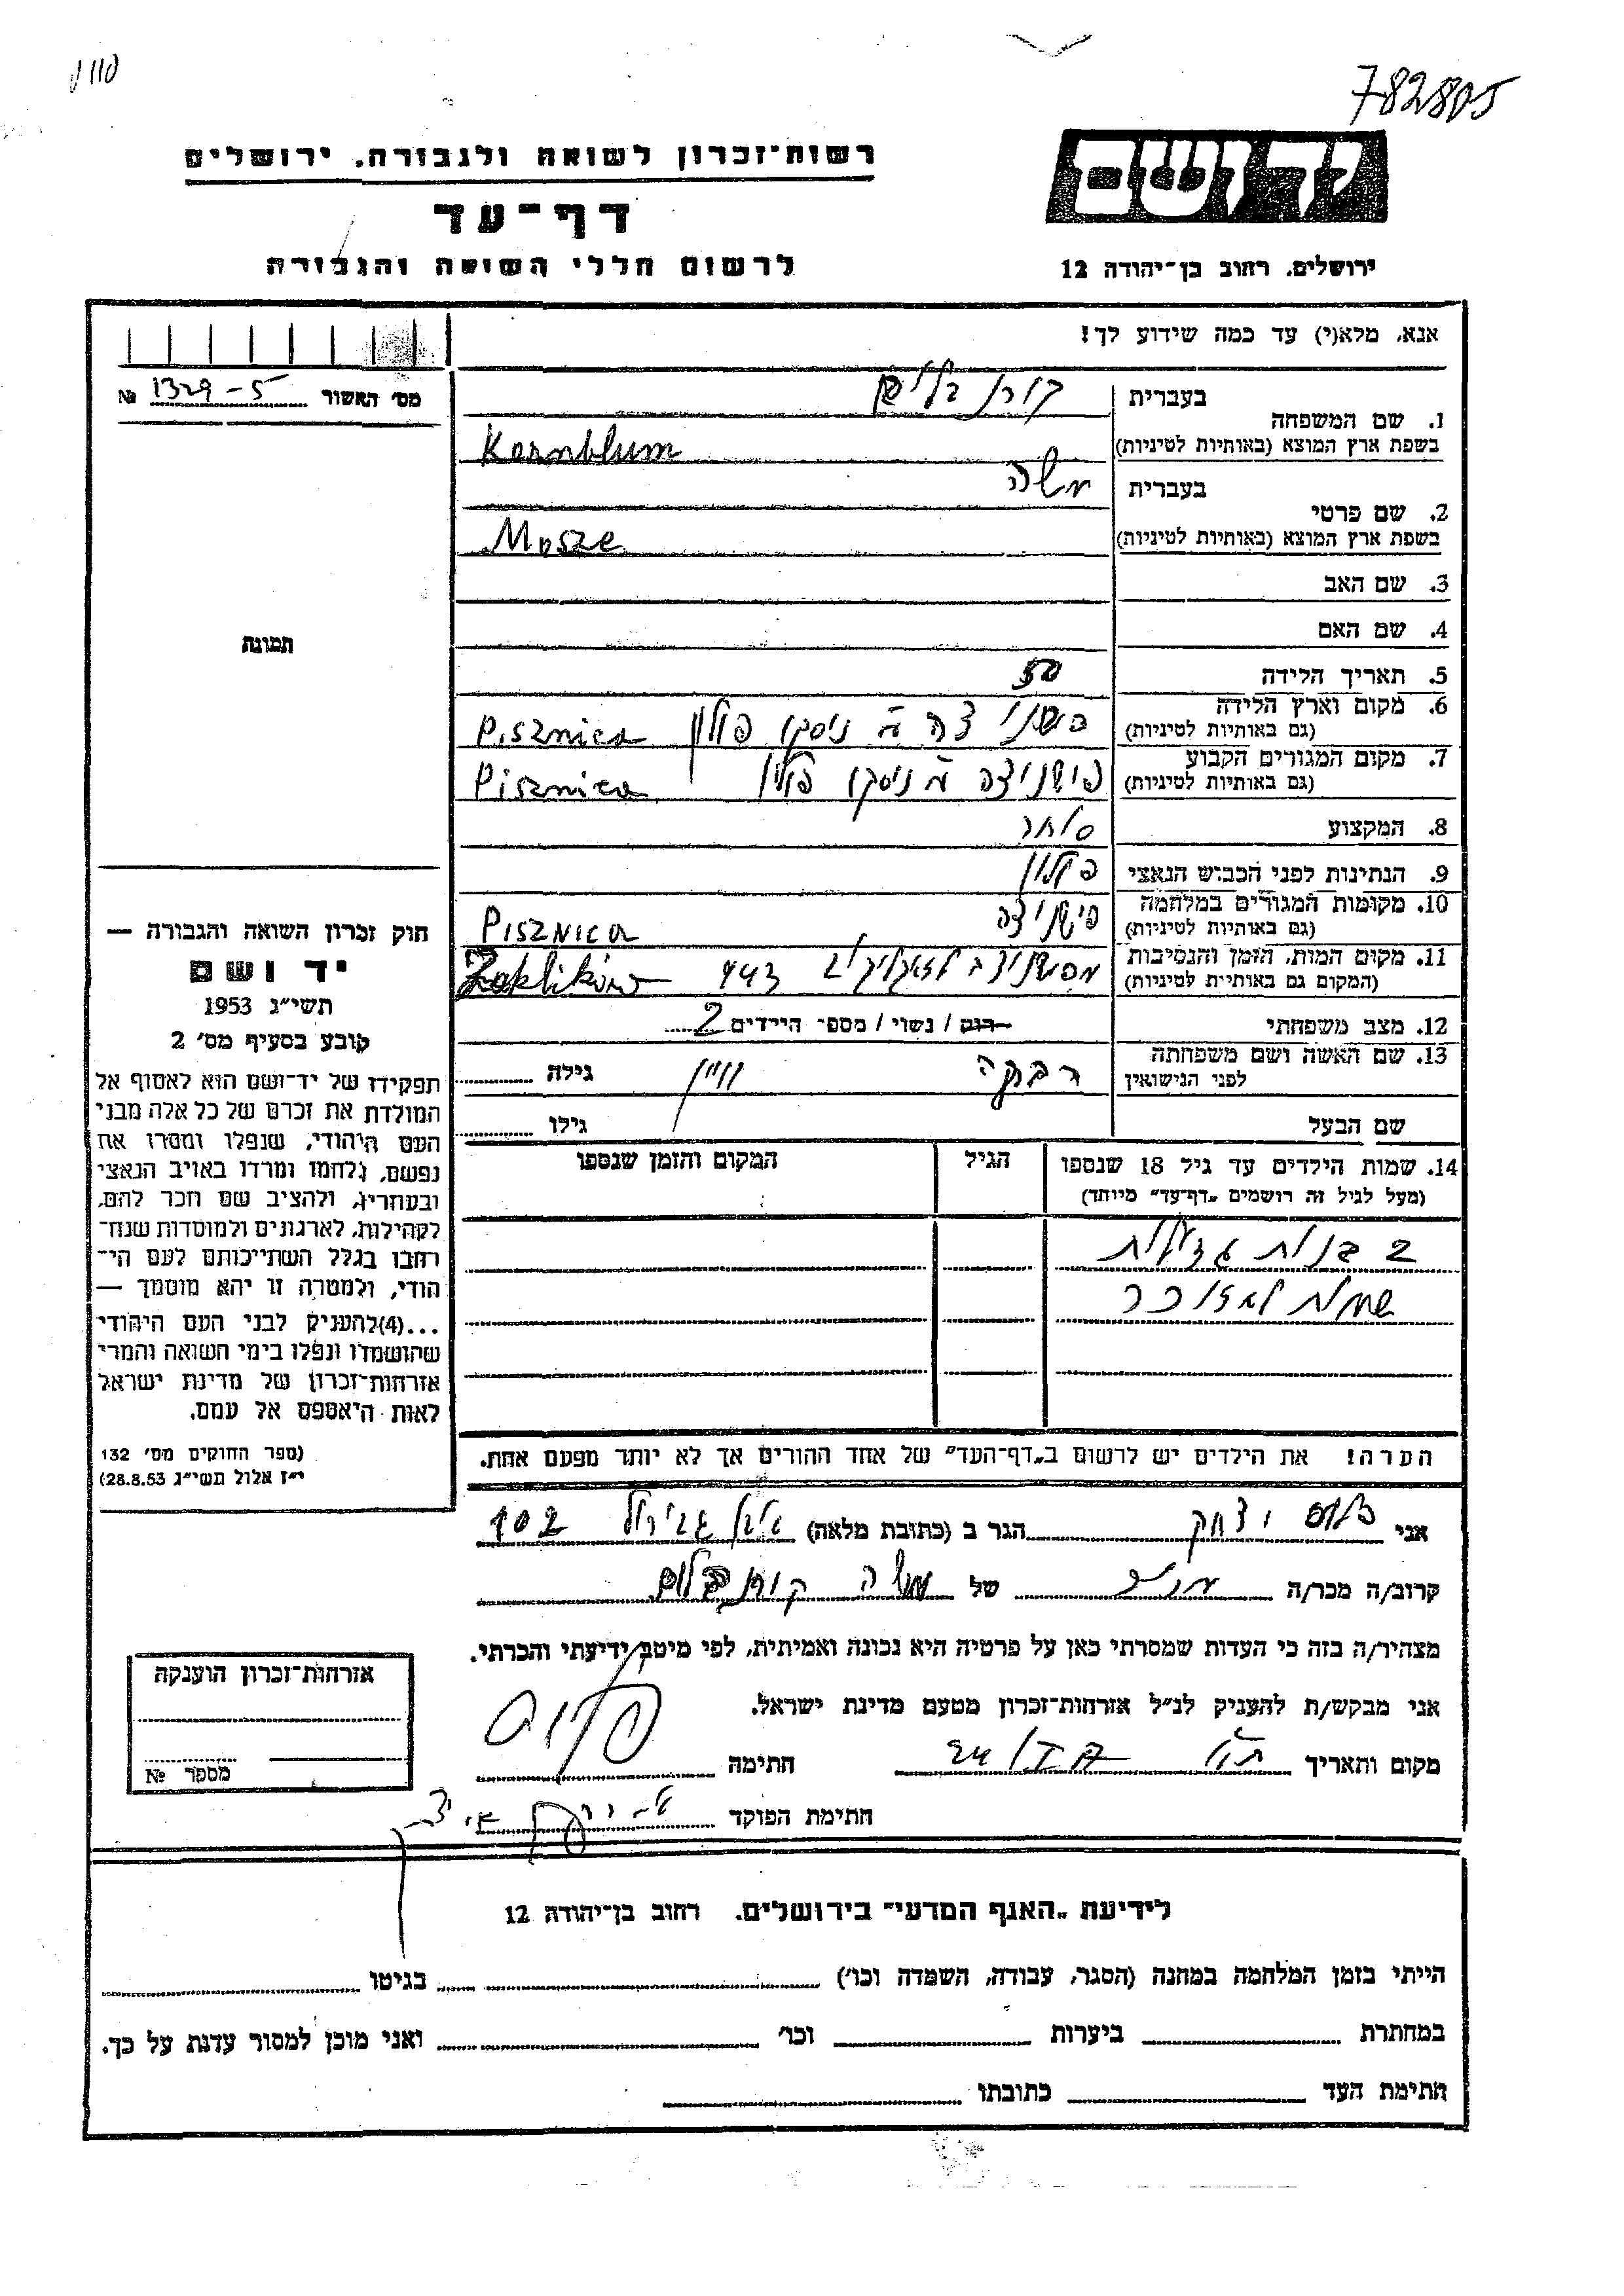 782805
יד ושם
רשות־זכרון לשואה ולגבורה. ירושלים
דף־עד
ירושלים. רחוב בן־יהודה 12
לרשום חללי השואה והגבורה
אנא, מלא(י) עד כמה שידוע לך!
מס׳ האשור № 1329-5
בעברית קורן בלום
1. שם המשפחה
בשפת ארץ המוצא (באותיות לטיניות) Kornblum
בעברית משה
2. שם פרטי
בשפת ארץ המוצא (באותיות לטיניות) Mosze
3. שם האב
תמונה
4. שם האם
5. תאריך הלידה 50
6. מקום וארץ הלידה
(גם באותיות לטיניות) פישניצה ניסקו פולין Pisznica
7. מקום המגורים הקבוע
(גם באותיות לטיניות) פישניצה ניסקו פולין Pisznica
8. המקצוע סוחר
9. הנתינות לפני הכבוש הנאצי
10. מקומות המגורים במלחמה
(גם באותיות לטיניות) פישניצה Pisznica
11. מקום המות, הזמן והנסיבות
(המקום גם באותיות לטיניות) מפישניצה לזאקליקוב 943 Zaklików
12. מצב משפחתי רווק / נשוי / מספר הילדים 2
13. שם האשה ושם משפחתה
לפני הנישואין רבקה גילה
שם הבעל גילו
14. שמות הילדים עד גיל 18 שנספו הגיל המקום והזמן שנספו
(מעל לגיל זה רושמים „דף־עד” מיוחד)
2 בנות
הערה! את הילדים יש לרשום ב„דף־העד” של אחד ההורים אך לא יותר מפעם אחת.
חוק זכרון השואה והגבורה —
יד ושם
תשי״ג 1953
קובע בסעיף מס׳ 2
תפקידו של יד־ושם הוא לאסוף אל
המולדת את זכרם של כל אלה מבני
העם היהודי, שנפלו ומסרו את
נפשם, נלחמו ומרדו באויב הנאצי
ובעוזריו, ולהציב שם וזכר להם,
לקהילות, לארגונים ולמוסדות שנח־
רחבו בגלל השתייכותם לעם הי־
הודי, ולמטרה זו יהא מוסמך —
...(4)להעניק לבני העם היהודי
שהושמדו ונפלו בימי השואה והמרי
אזרחות־זכרון של מדינת ישראל
לאות היאספם אל עמם.
(ספר החוקים מס׳ 132
י״ז אלול תשי״ג 28.8.53)
אני יצחק הגר ב (כתובת מלאה) אבן גבירול 102
קרוב/ה מכר/ה מכר של משה קורנבלום
מצהיר/ה בזה כי העדות שמסרתי כאן על פרטיה היא נכונה ואמיתית, לפי מיטב ידיעתי והכרתי.
אני מבקש/ת להעניק לנ״ל אזרחות־זכרון מטעם מדינת ישראל.
מקום ותאריך חתימה
חתימת הפוקד
אזרחות־זכרון הוענקה
מספר №
לידיעת „האגף המדעי” בירושלים. רחוב בן־יהודה 12
הייתי בזמן המלחמה במחנה (הסגר, עבודה, השמדה וכו׳) בגיטו
במחתרת ביערות וכו׳ ואני מוכן למסור עדות על כך.
חתימת העד כתובתו